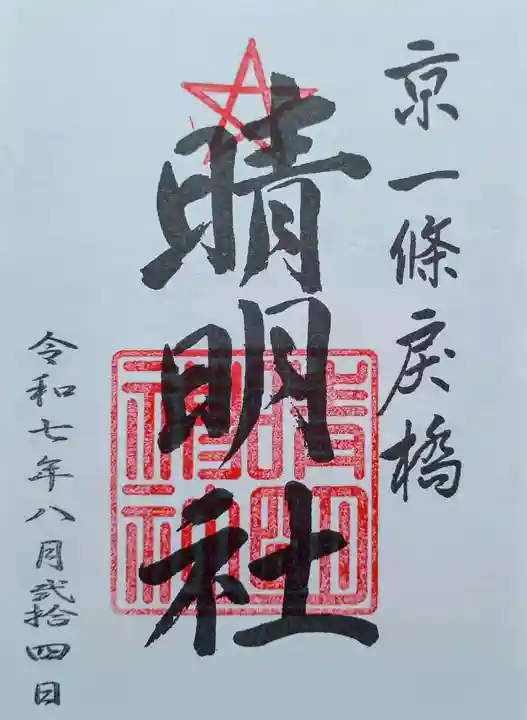 京一條戻橋
晴明社
令和七年八月弐拾四日